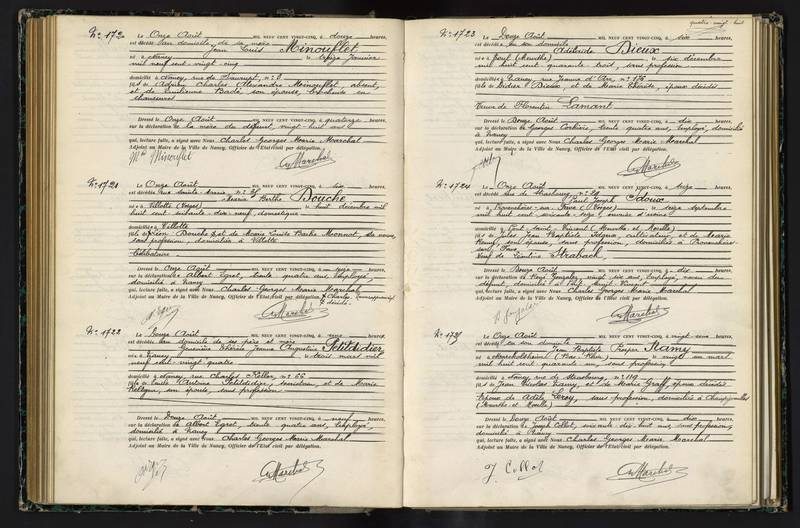 N° 1720
Le Onze Août MIL NEUF CENT VINGT-CINQ, à douze heures,
est décédé au domicile de sa mère
Jean Louis Minouflet
né à Nancy le treize Janvier
mil neuf cent vingt cinq
domicilié à Nancy, rue de
fils de Charles Alexandre Minouflet absent,
et de Emilienne Badé son épouse,
Dressé le Onze Août MIL NEUF CENT VINGT-CINQ, à quatorze heures,
sur la déclaration de la mère du défunt, vingt huit ans
qui, lecture faite, a signé avec Nous Charles Georges Marie Marchal
Adjoint au Maire de la Ville de Nancy, Officier de l'Etat civil par délégation.
Minouflet Marchal
N° 1721
Le Onze Août MIL NEUF CENT VINGT-CINQ, à dix heures,
est décédée rue Sainte Marie
Marie Berthe Bouche
née à Villotte (Vosges) le huit décembre mil
huit cent soixante dix neuf, domestique
domiciliée à Villotte
fille de Léon Bouche et de Marie Emilie Berthe Monnot, sa veuve,
sans profession, domiciliée à Villotte
Célibataire
Dressé le Onze Août MIL NEUF CENT VINGT-CINQ, à onze heures,
sur la déclaration de Albert Egrot, trente quatre ans, employé,
domicilié à Nancy
qui, lecture faite, a signé avec Nous Charles Georges Marie Marchal
Adjoint au Maire de la Ville de Nancy, Officier de l'Etat civil par délégation.
Marchal
N° 1722
Le Douze Août MIL NEUF CENT VINGT-CINQ, à heures,
est décédée au domicile de ses père et mère
Geneviève Thérèse Jeanne Augustine Petitdidier
née à Nancy le trois mars mil
neuf cent vingt quatre
domiciliée à Nancy, rue Charles Keller, n° 66
fille de Emile Antoine Petitdidier, et de Marie
son épouse, sans profession
Dressé le Douze Août MIL NEUF CENT VINGT-CINQ, à neuf heures,
sur la déclaration de Albert Egrot, trente quatre ans, employé,
domicilié à Nancy
qui, lecture faite, a signé avec Nous Charles Georges Marie Marchal
Adjoint au Maire de la Ville de Nancy, Officier de l'Etat civil par délégation.
Marchal
quatre vingt huit
N° 1723
Le Douze Août MIL NEUF CENT VINGT-CINQ, à six heures,
est décédée en son domicile
Adélaïde Dieux
née à Toul (Meurthe) le six décembre
mil huit cent quarante trois, sans profession
domiciliée à Nancy, rue Jeanne d'Arc, n° 176
fille de Didier Dieux, et de Marie Thérèse, époux décédés
Veuve de Florentin Lamart
Dressé le Douze Août MIL NEUF CENT VINGT-CINQ, à dix heures,
sur la déclaration de Georges trente quatre ans, employé, domicilié
à Nancy
qui, lecture faite, a signé avec Nous Charles Georges Marie Marchal
Adjoint au Maire de la Ville de Nancy, Officier de l'Etat civil par délégation.
Marchal
N° 1724
Le Onze Août MIL NEUF CENT VINGT-CINQ, à seize heures,
est décédé rue de Strasbourg
Paul Joseph Idoux
né à Provenchères sur Fave (Vosges) le seize septembre
mil huit cent soixante seize, ouvrier d'usine
domicilié à Pont Saint Vincent (Meurthe et Moselle)
fils de Jules Jean Baptiste Idoux, cultivateur, et de Marie
son épouse, sans profession, domiciliés à Provenchères
sur Fave
Veuf de Strabach
Dressé le Douze Août MIL NEUF CENT VINGT-CINQ, à dix heures,
sur la déclaration de vingt six ans, employé, neveu du
défunt, domicilié à Pont Saint Vincent
qui, lecture faite, a signé avec Nous Charles Georges Marie Marchal
Adjoint au Maire de la Ville de Nancy, Officier de l'Etat civil par délégation.
Marchal
N° 1725
Le Onze Août MIL NEUF CENT VINGT-CINQ, à vingt heures,
est décédé en son domicile
Jean Baptiste Prosper Ramy
né à Marckolsheim (Bas-Rhin) le vingt un mars
mil huit cent quarante un, sans profession
domicilié à Nancy, rue de Strasbourg, n° 119
fils de Jean Nicolas Ramy, et de Marie Graff, époux décédés
Epoux de Adèle Leroy, sans profession, domiciliée à Champigneulles
(Meurthe et Moselle)
Dressé le Douze Août MIL NEUF CENT VINGT-CINQ, à dix heures,
sur la déclaration de Joseph Collot, soixante dix huit ans, sans profession,
domicilié à Nancy
qui, lecture faite, a signé avec Nous Charles Georges Marie Marchal
Adjoint au Maire de la Ville de Nancy, Officier de l'Etat civil par délégation.
J. Collot Marchal